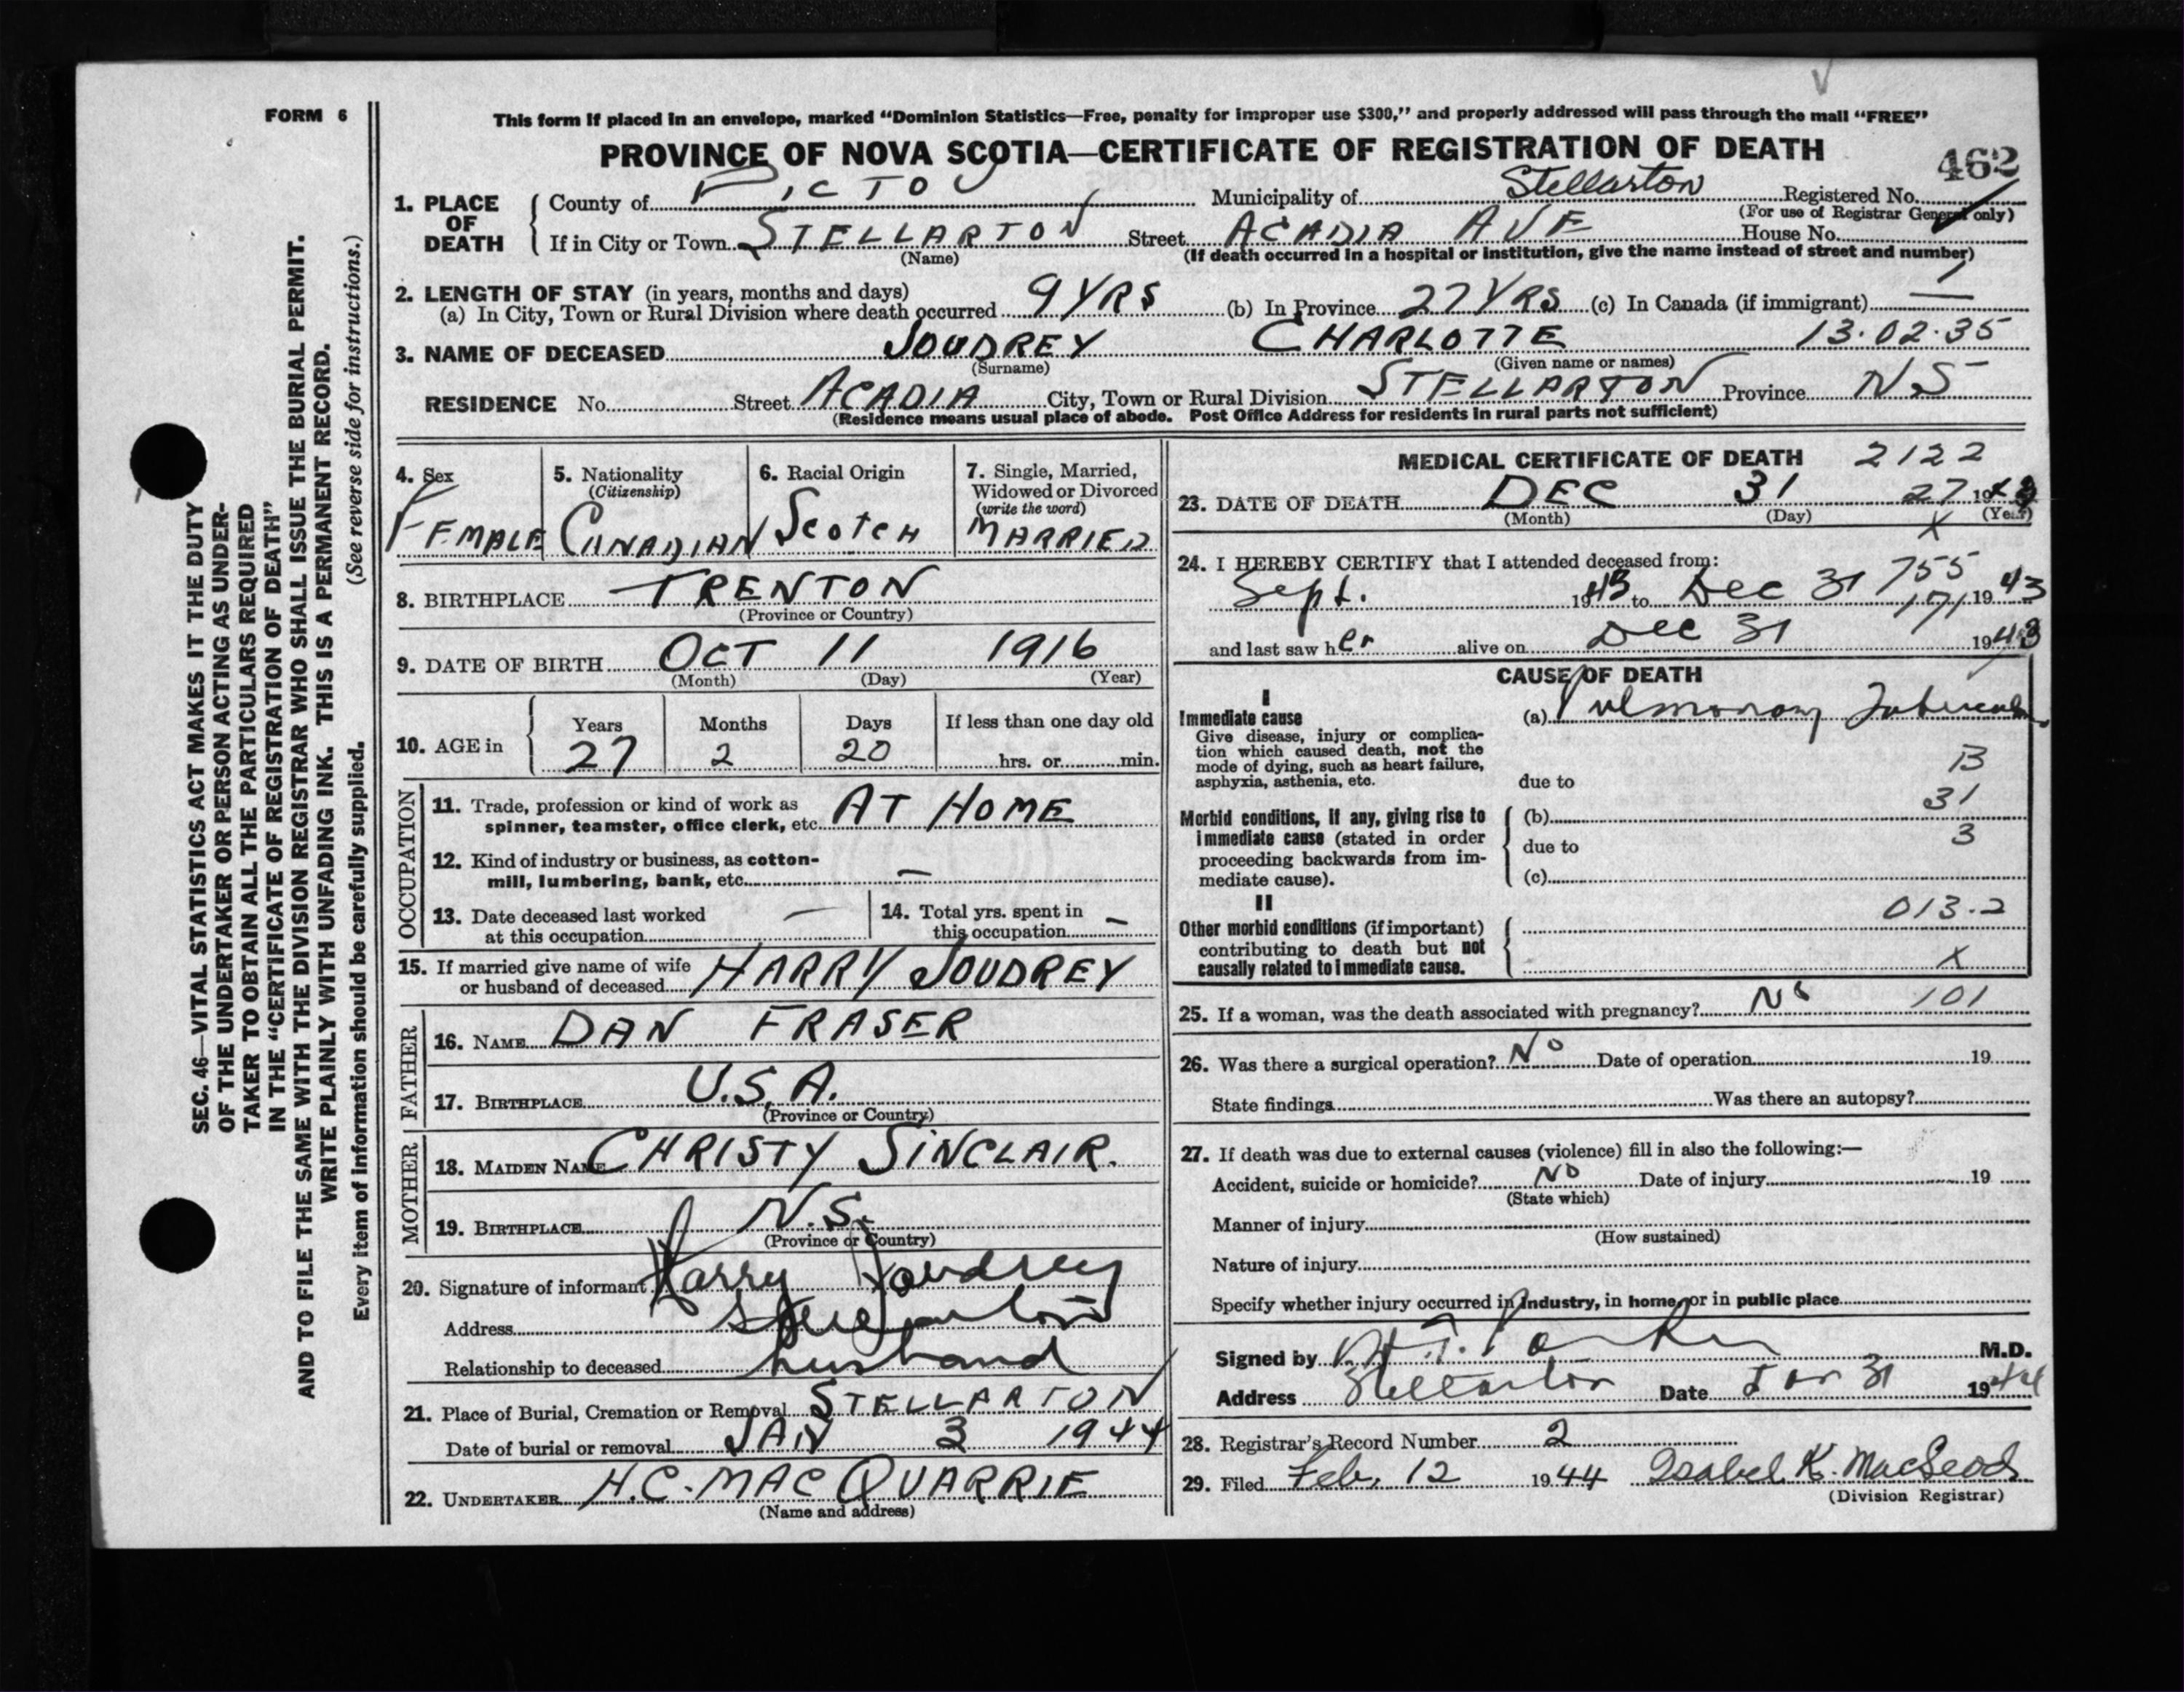 FORM 6
This form if placed in an envelope, marked “Dominion Statistics—Free, penalty for improper use $300,” and properly addressed will pass through the mail “FREE”
PROVINCE OF NOVA SCOTIA—CERTIFICATE OF REGISTRATION OF DEATH
462
1. PLACE OF DEATH
County of PICTOU Municipality of Stellarton Registered No.
(For use of Registrar General only)
If in City or Town STELLARTON Street ACADIA AVE House No.
(Name) (If death occurred in a hospital or institution, give the name instead of street and number)
2. LENGTH OF STAY (in years, months and days)
(a) In City, Town or Rural Division where death occurred 9 YRS (b) In Province 27 YRS (c) In Canada (if immigrant) —
3. NAME OF DECEASED JOUDREY CHARLOTTE 13·02·35
(Surname) (Given name or names)
RESIDENCE No. Street ACADIA City, Town or Rural Division STELLARTON Province N S
(Residence means usual place of abode. Post Office Address for residents in rural parts not sufficient)
4. Sex
FEMALE
5. Nationality
(Citizenship)
CANADIAN
6. Racial Origin
SCOTCH
7. Single, Married,
Widowed or Divorced
(write the word)
MARRIED
8. BIRTHPLACE TRENTON
(Province or Country)
9. DATE OF BIRTH OCT 11 1916
(Month) (Day) (Year)
10. AGE in
Years Months Days If less than one day old
27 2 20 hrs. or min.
OCCUPATION
11. Trade, profession or kind of work as
spinner, teamster, office clerk, etc. AT HOME
12. Kind of industry or business, as cotton-
mill, lumbering, bank, etc. —
13. Date deceased last worked
at this occupation —
14. Total yrs. spent in
this occupation —
15. If married give name of wife
or husband of deceased HARRY JOUDREY
FATHER
16. NAME DAN FRASER
17. BIRTHPLACE U.S.A.
(Province or Country)
MOTHER
18. MAIDEN NAME CHRISTY SINCLAIR.
19. BIRTHPLACE N.S.
(Province or Country)
20. Signature of informant Harry Joudrey
Address Stellarton
Relationship to deceased husband
21. Place of Burial, Cremation or Removal STELLARTON
Date of burial or removal JAN 3 1944
22. UNDERTAKER H.C. MAC QUARRIE
(Name and address)
MEDICAL CERTIFICATE OF DEATH 2122
23. DATE OF DEATH DEC 31 27 1943
(Month) (Day) (Year)
X
24. I HEREBY CERTIFY that I attended deceased from:
755
Sept. 1943 to Dec 31 171 1943
and last saw her alive on Dec 31 1943
CAUSE OF DEATH
I
Immediate cause
Give disease, injury or complica-
tion which caused death, not the
mode of dying, such as heart failure,
asphyxia, asthenia, etc.
(a) Pulmonary Tuberculosis
B
due to
31
Morbid conditions, if any, giving rise to
immediate cause (stated in order
proceeding backwards from im-
mediate cause).
(b)
3
due to
(c)
II
Other morbid conditions (if important)
contributing to death but not
causally related to immediate cause.
013·2
X
25. If a woman, was the death associated with pregnancy? No 101
26. Was there a surgical operation? No Date of operation 19
State findings Was there an autopsy?
27. If death was due to external causes (violence) fill in also the following:—
Accident, suicide or homicide? NO Date of injury 19
(State which)
Manner of injury
(How sustained)
Nature of injury
Specify whether injury occurred in industry, in home, or in public place
Signed by Parker M.D.
Address Stellarton Date Jan 31 1944
28. Registrar's Record Number 2
29. Filed Feb. 12 1944 Isabel K. MacLeod
(Division Registrar)
SEC. 46—VITAL STATISTICS ACT MAKES IT THE DUTY
OF THE UNDERTAKER OR PERSON ACTING AS UNDER-
TAKER TO OBTAIN ALL THE PARTICULARS REQUIRED
IN THE “CERTIFICATE OF REGISTRATION OF DEATH”
AND TO FILE THE SAME WITH THE DIVISION REGISTRAR WHO SHALL ISSUE THE BURIAL PERMIT.
WRITE PLAINLY WITH UNFADING INK. THIS IS A PERMANENT RECORD.
Every item of information should be carefully supplied. (See reverse side for instructions.)